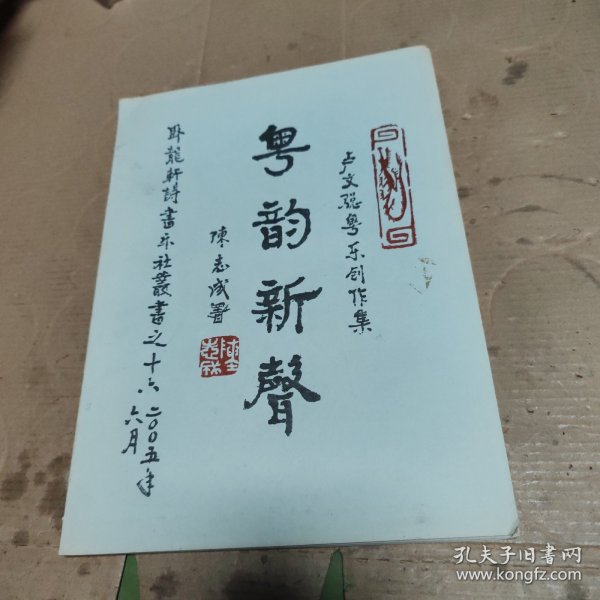 卢文聪粤乐创作集
粤韵新聲
陳志成署
陳志成
卧龍軒詩書乐社叢書之十六 二〇〇五年
六月
孔夫子旧书网
www.kongfz.com